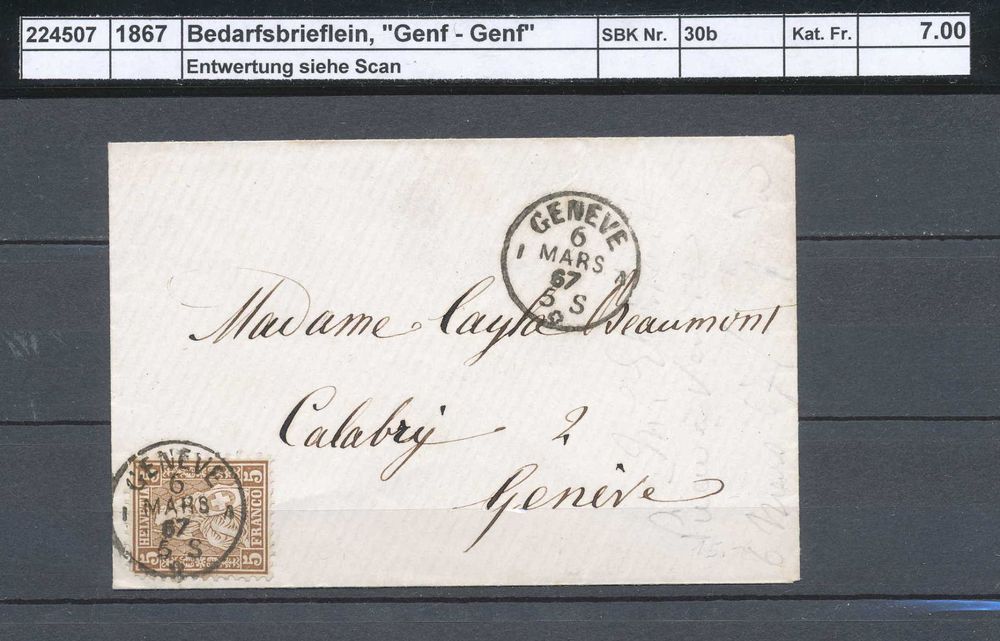 224507 1867 Bedarfsbrieflein, "Genf - Genf" SBK Nr. 30b Kat. Fr. 7.00
Entwertung siehe Scan
GENÈVE
6
I MARS A
67
5 S
Madame Cayla Beaumont
Calabry 2
Genève
GENÈVE
6
I MARS A
67
5 S
5 HELVETIA 5
5 FRANCO 5